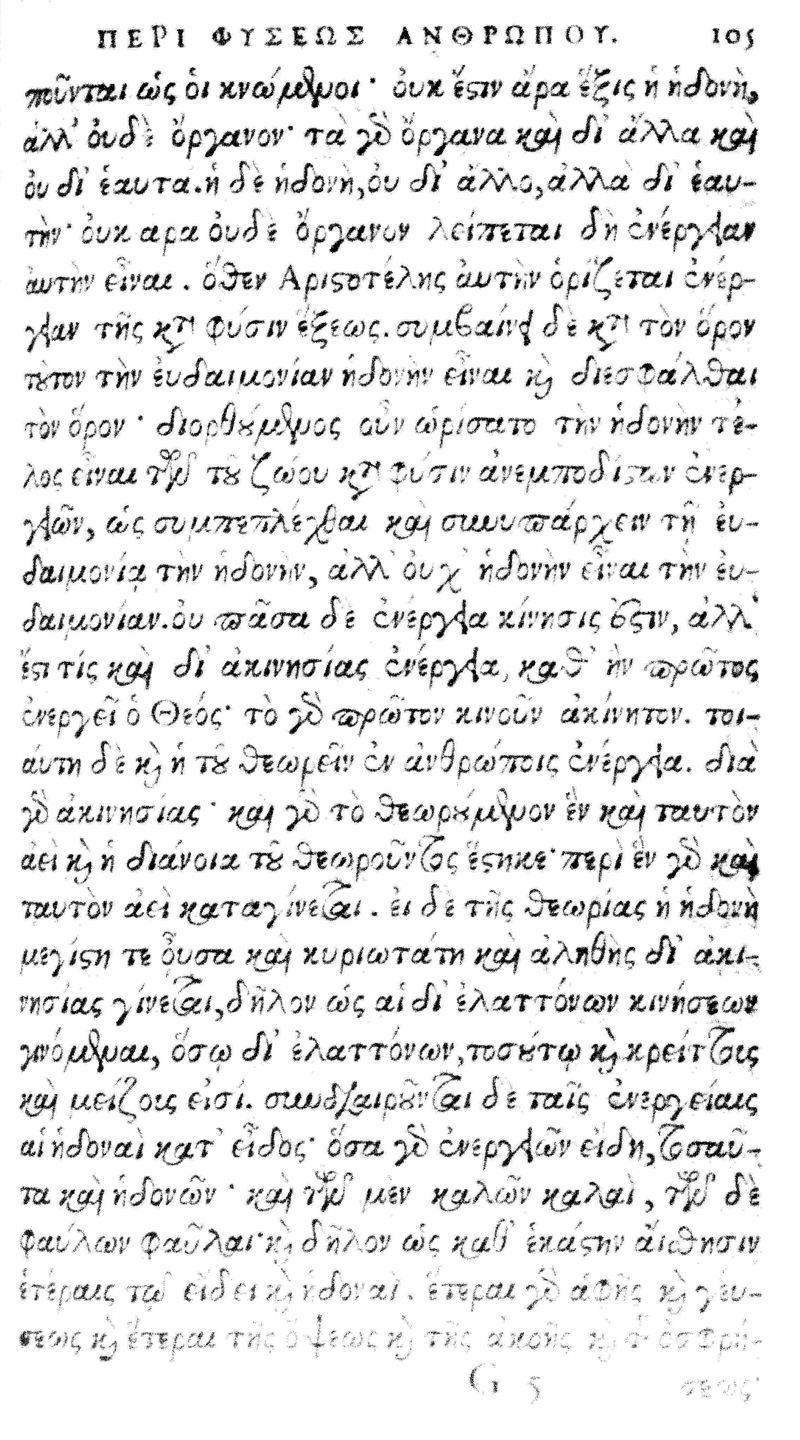 ΠΕΡΙ ΦΥΣΕΩΣ ΑΝΘΡΩΠΟΥ. 105
ποῦνται ὡς ὁι κνώμϟμοι· ὀυκ ἔςιν ἄρα ἕξις ἡ ἡδονὴ,
ἀλλ' ὀυδὲ ὄργανον· τὰ γὸ ὄργανα καὶ δι' ἄλλα καὶ
ὀυ δι' ἑαυτα. ἡ δὲ ἡδονὴ, ὀυ δι' ἀλλο, ἀλλὰ δι' ἑαυ-
τὴν· ὀυκ αρα ὀυδὲ ὄργανον λείπεται δὴ ἐνέργειαν
ἀυτὴν εἶναι. ὅθεν Αριςοτέλης ἀυτὴν ὁρίζεται ἐνέρ-
γειαν τῆς κτ̀ φύσιν ἕξεως. συμβαίνει δὲ κτ̀ τὸν ὅρον
τȣ͂τον τὴν ἐυδαιμονίαν ἡδονὴν εἶναι κὶ διεσφάλθαι
τὸν ὅρον· διορθȣ́μενος οὖν ὡρίσατο τὴν ἡδονὴν τέ-
λος εἶναι τῶν τȣ͂ ζώου κτ̀ φύσιν ἀνεμποδίςων ἐνερ-
γειῶν, ὡς συμπεπλέχθαι καὶ συνυπάρχειν τῇ ἐυ-
δαιμονίᾳ τὴν ἡδονὴν, ἀλλ' ὀυχ' ἡδονὴν εἶναι τὴν ἐυ-
δαιμονίαν. ὀυ πᾶσα δὲ ἐνέργεια κίνησις ἐςὶν, ἀλλ'
ἔςι τίς καὶ δι' ἀκινησίας ἐνέργεια, καθ' ἣν πρῶτος
ἐνεργεῖ ὁ Θεός· τὸ γὸ πρῶτον κινοῦν ἀκίνητον. τοι-
αύτη δὲ κὶ ἡ τȣ͂ θεωρεῖν ἐν ἀνθρώποις ἐνέργεια. διὰ
γὸ ἀκινησίας· καὶ γὸ τὸ θεωρȣ́μενον ἓν καὶ ταυτὸν
ἀεὶ κὶ ἡ διάνοια τȣ͂ θεωροῦντος ἕςηκε· περὶ ἓν γὸ καὶ
ταυτὸν ἀεὶ καταγίνεται. ἐι δὲ τῆς θεωρίας ἡ ἡδονὴ
μεγίςη τε ὖσα καὶ κυριωτάτη καὶ ἀληθὴς δι' ἀκι-
νησίας γίνεται, δῆλον ὡς αἱ δι' ἐλαττόνων κινήσεων
γινόμεναι, ὅσῳ δι' ἐλαττόνων, τοσȣ́τῳ κὶ κρείττοις
καὶ μείζοις εἰσί. συνδιαιρȣ͂νται δὲ ταῖς ἐνεργείαις
αἱ ἡδοναὶ κατ' εἶδος· ὅσα γὸ ἐνεργειῶν εἰδη, τοσαῦ-
τα καὶ ἡδονῶν· καὶ τῶν μὲν καλῶν καλαὶ, τῶν δὲ
φαύλων φαῦλαι· κὶ δῆλον ὡς καθ' ἑκάςην ἄισθησιν
ἑτέραις τῷ εἰδει κὶ ἡδοναὶ. ἕτεραι γὸ ἁφῆς κὶ γέυ-
σεως κὶ ἕτεραι τῆς ὄψεως κὶ τῆς ἀκοῆς κὶ τ͂ ὀσφρή-
G 5 σεως·